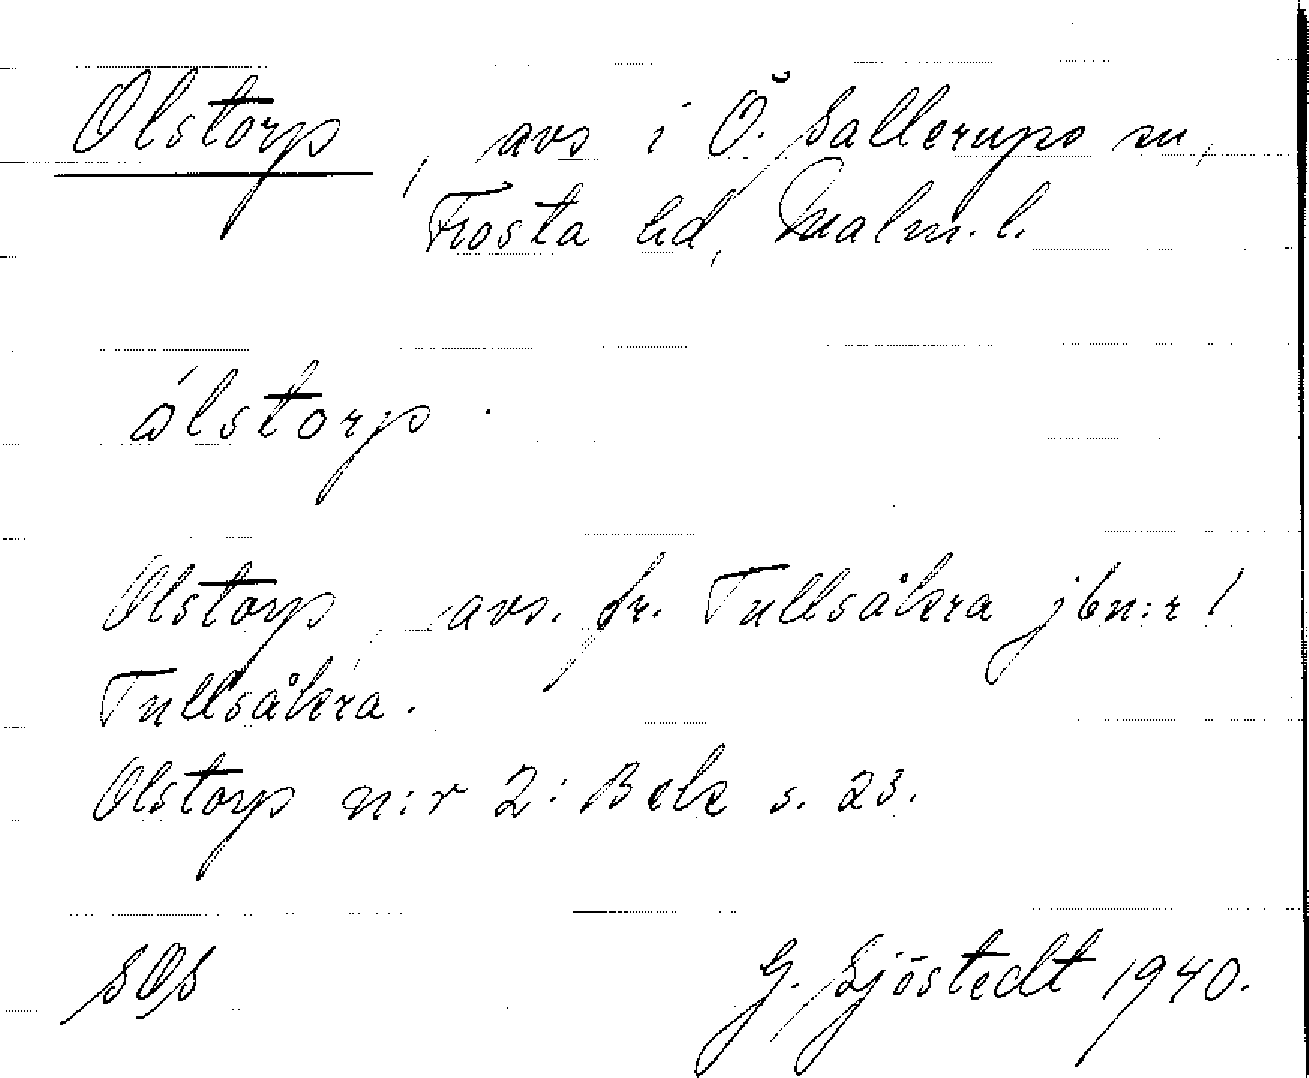 Olstorp, avs i Ö. Sallerups sn,
Frosta hd, Malm. l.
ólstorp.
Olstorp, avs. fr. Tullsåkra jbn:r 1
Tullsåkra.
Olstorp n:r 2: Bebr s. 23.
SOS
G. Sjöstedt 1940.